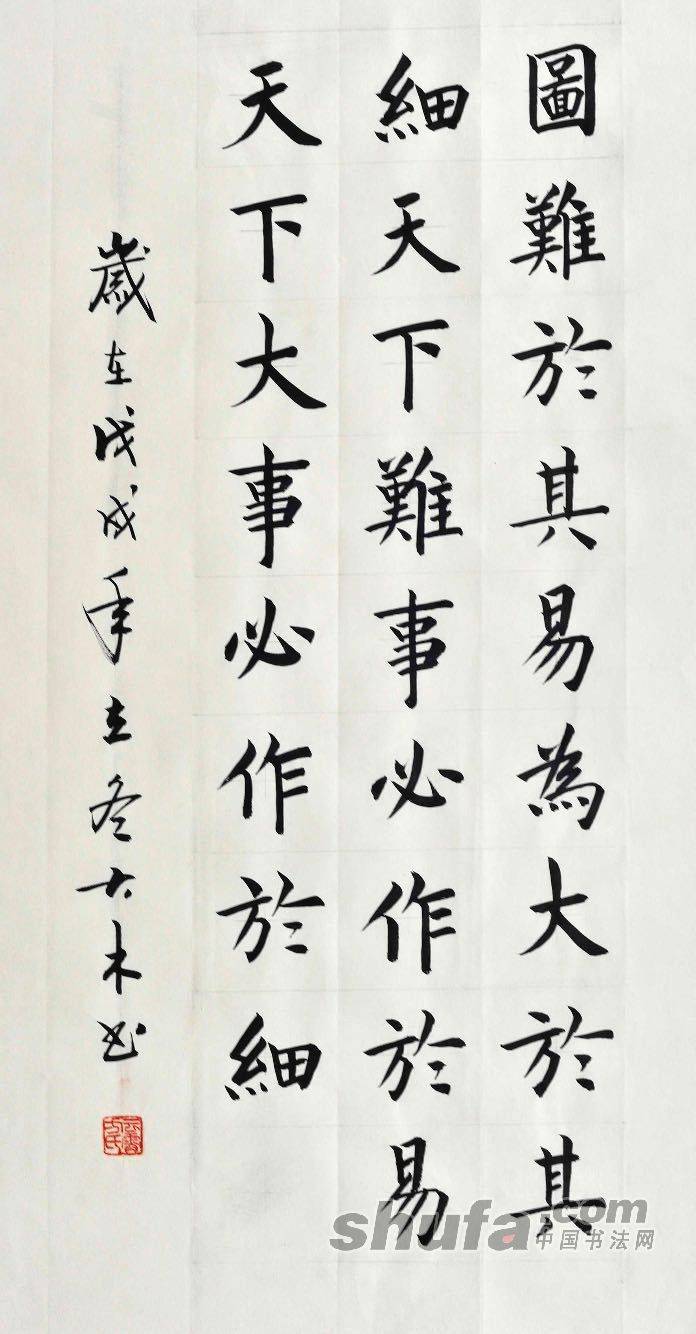 圖難於其易為大於其
細天下難事必作於易
天下大事必作於細
歲在戊戌年立冬大木书
shufa.com
中国书法网